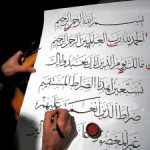 بسم الله الرحمن الرحيم
الحمد لله رب العالمين الرحمن الرحيم
مالك يوم الدين إياك نعبد وإياك
نستعين اهدنا الصراط المستقيم
صراط الذين أنعمت عليهم
غير المغضوب